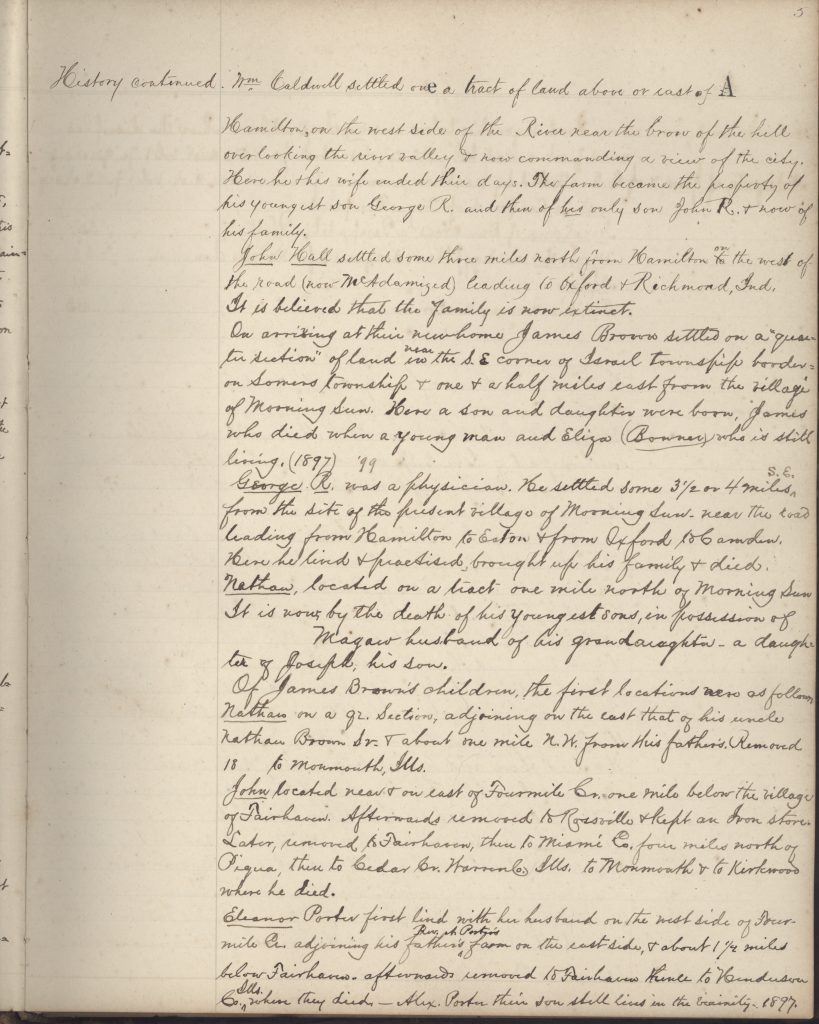 5
History continued. Wm Caldwell settled one a tract of land above or east of A
Hamilton, on the west side of the River near the brow of the hill
overlooking the river valley & now commanding a view of the city.
Here he & his wife ended their days. The farm became the property of
his youngest son George R. and then of his only son John R. & now of
his family.
John Hall settled some three miles north from Hamilton on the west of
the road (now McAdamized) leading to Oxford & Richmond, Ind.
It is believed that the family is now extinct.
On arriving at their new home James Brown settled on a "quar-
ter section" of land near the S.E corner of Israel township border=
on Somers township & one & a half miles east from the village
of Morning Sun. Here a son and daughter were born, James
who died when a young man and Eliza (Bonner) who is still
living. (1897) '99
George R. was a physician. He settled some 3 1/2 or 4 miles S.E.
from the site of the present village of Morning Sun - near the road
leading from Hamilton to Eaton & from Oxford to Camden.
Here he lived & practised, brought up his family & died.
Nathan, located on a tract one mile north of Morning Sun
It is now, by the death of his youngest sons, in possession of
Magaw husband of his grandaughter - a daugh-
ter of Joseph, his son.
Of James Brown's children, the first locations were as follows
Nathan on a qr. Section, adjoining on the east that of his uncle
Nathan Brown Sr. & about one mile N.W. from his father's. Removed
18 to Monmouth, Ills.
John located near & on east of Fourmile Cr. one mile below the village
of Fairhaven. Afterwards removed to Rossville & kept an Iron store.
Later, removed to Fairhaven, then to Miami Co. four miles north of
Piqua, then to Cedar Cr. Warren Co, Ills. to Monmouth & to Kirkwood
where he died.
Eleanor Porter first lived with her husband on the west side of Four-
mile Cr. adjoining his father's Rev. A Porter's farm on the east side, & about 1 1/2 miles
below Fairhaven. afterwards removed to Fairhaven thence to Henderson
Co. Ills. when they died - Alex. Porter their son still lives in the vicinity - 1897.